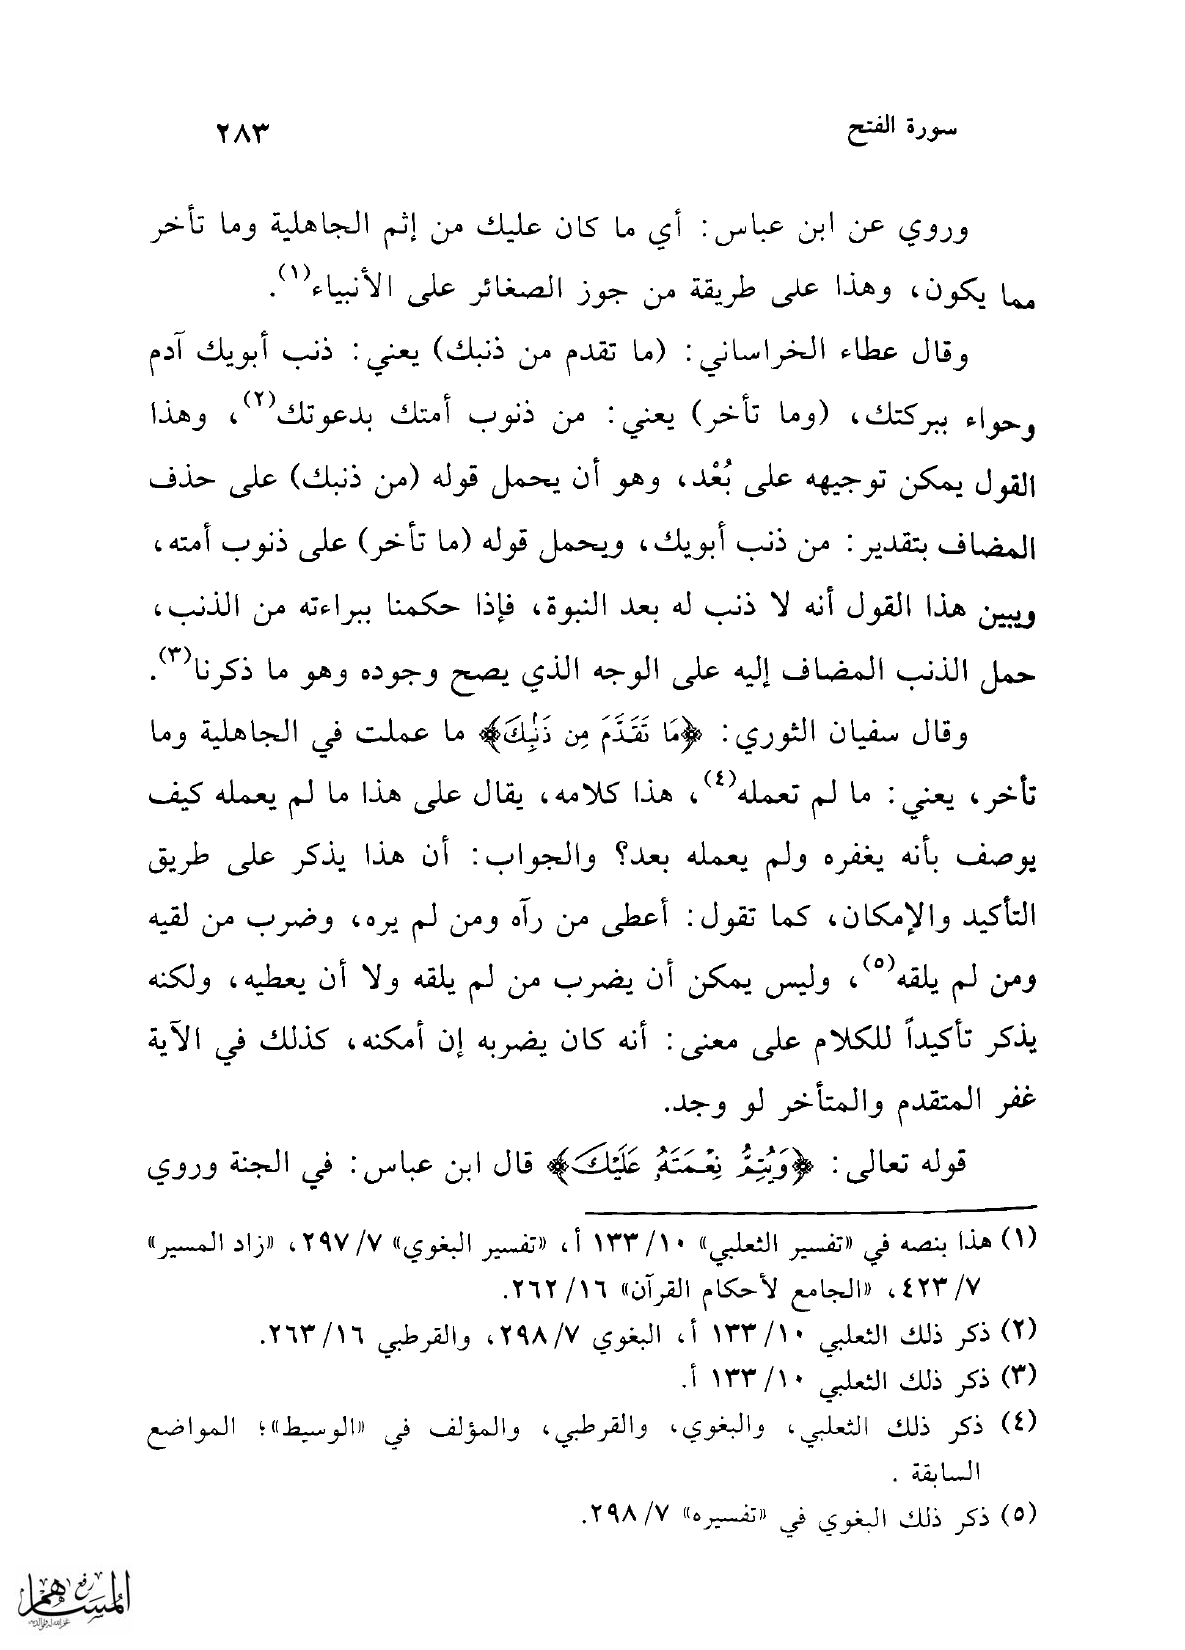 سورة الفتح ٢٨٣
وروي عن ابن عباس: أي ما كان عليك من إثم الجاهلية وما تأخر
مما يكون، وهذا على طريقة من جوز الصغائر على الأنبياء(١).
وقال عطاء الخراساني: (ما تقدم من ذنبك) يعني: ذنب أبويك آدم
وحواء ببركتك، (وما تأخر) يعني: من ذنوب أمتك بدعوتك(٢)، وهذا
القول يمكن توجيهه على بُعْد، وهو أن يحمل قوله (من ذنبك) على حذف
المضاف بتقدير: من ذنب أبويك، ويحمل قوله (ما تأخر) على ذنوب أمته،
ويبين هذا القول أنه لا ذنب له بعد النبوة، فإذا حكمنا ببراءته من الذنب،
حمل الذنب المضاف إليه على الوجه الذي يصح وجوده وهو ما ذكرنا(٣).
وقال سفيان الثوري: ﴿مَا تَقَدَّمَ مِن ذَنۢبِكَ﴾ ما عملت في الجاهلية وما
تأخر، يعني: ما لم تعمله(٤)، هذا كلامه، يقال على هذا ما لم يعمله كيف
يوصف بأنه يغفره ولم يعمله بعد؟ والجواب: أن هذا يذكر على طريق
التأكيد والإمكان، كما تقول: أعطى من رآه ومن لم يره، وضرب من لقيه
ومن لم يلقه(٥)، وليس يمكن أن يضرب من لم يلقه ولا أن يعطيه، ولكنه
يذكر تأكيداً للكلام على معنى: أنه كان يضربه إن أمكنه، كذلك في الآية
غفر المتقدم والمتأخر لو وجد.
قوله تعالى: ﴿وَيُتِمُّ نِعْمَتَهُۥ عَلَيْكَ﴾ قال ابن عباس: في الجنة وروي
(١) هذا بنصه في «تفسير الثعلبي» ١٠/ ١٣٣ أ، «تفسير البغوي» ٧/ ٢٩٧، «زاد المسير»
٧/ ٤٢٣، «الجامع لأحكام القرآن» ١٦/ ٢٦٢.
(٢) ذكر ذلك الثعلبي ١٠/ ١٣٣ أ، البغوي ٧/ ٢٩٨، والقرطبي ١٦/ ٢٦٣.
(٣) ذكر ذلك الثعلبي ١٠/ ١٣٣ أ.
(٤) ذكر ذلك الثعلبي، والبغوي، والقرطبي، والمؤلف في «الوسيط»؛ المواضع
السابقة .
(٥) ذكر ذلك البغوي في «تفسيره» ٧/ ٢٩٨.